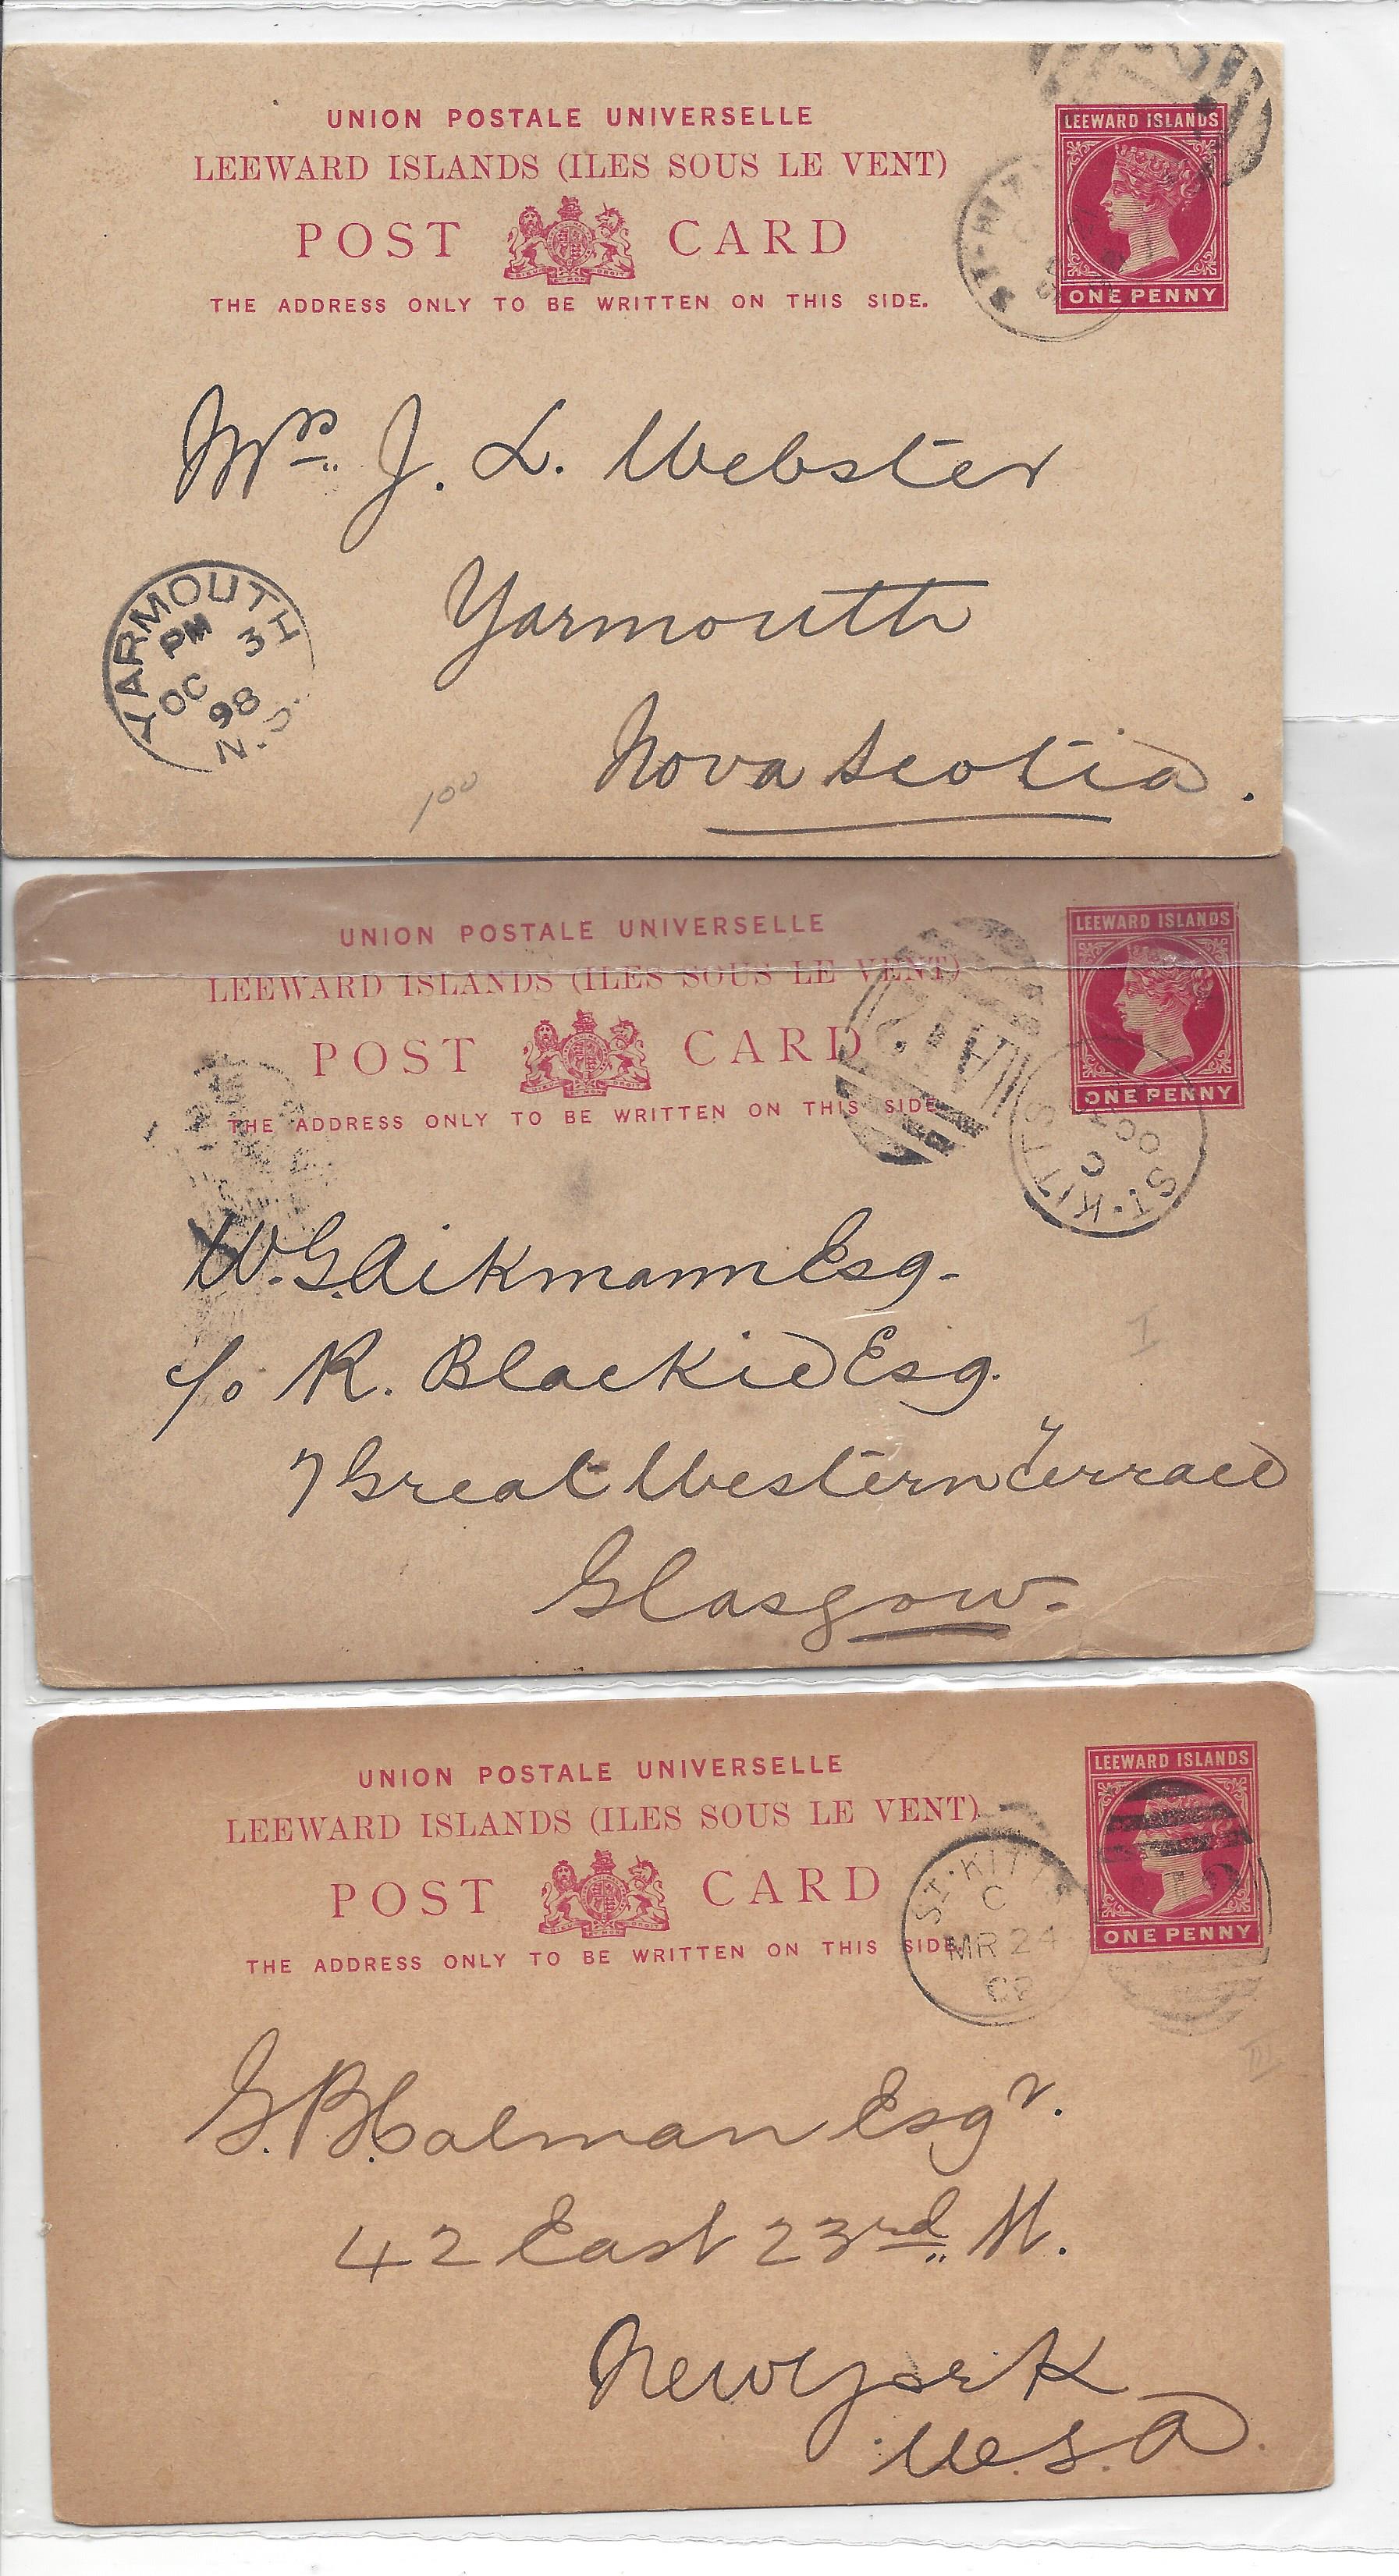 UNION POSTALE UNIVERSELLE
LEEWARD ISLANDS (ILES SOUS LE VENT)
POST CARD
THE ADDRESS ONLY TO BE WRITTEN ON THIS SIDE.
LEEWARD ISLANDS
ONE PENNY
Mrs. J. L. Webster
Yarmouth
Nova Scotia.
YARMOUTH
PM
OC 3
98
N.S.
100
UNION POSTALE UNIVERSELLE
LEEWARD ISLANDS (ILES SOUS LE VENT)
POST CARD
THE ADDRESS ONLY TO BE WRITTEN ON THIS SIDE
LEEWARD ISLANDS
ONE PENNY
A12
ST. KITTS
C
OC
W. G. Aikmann Esq.
c/o R. Blackie Esq.
7 Great Western Terrace
Glasgow.
I
UNION POSTALE UNIVERSELLE
LEEWARD ISLANDS (ILES SOUS LE VENT)
POST CARD
THE ADDRESS ONLY TO BE WRITTEN ON THIS SIDE
LEEWARD ISLANDS
ONE PENNY
ST. KITTS
C
MR 24
02
G. B. Calman Esqr.
42 East 23rd St.
New York
U.S.A.